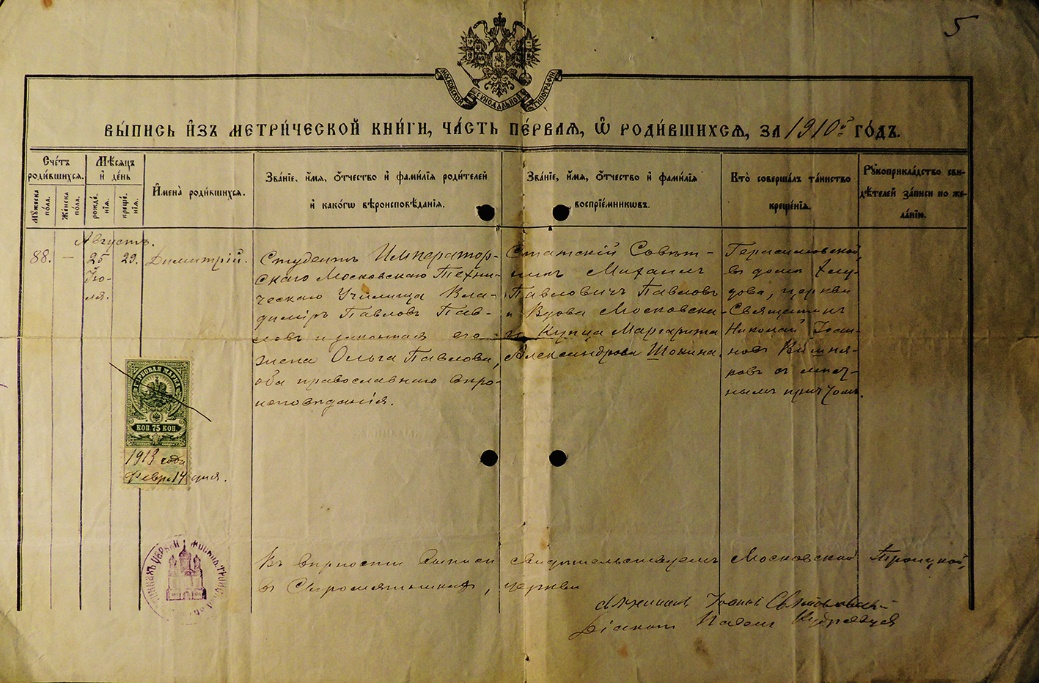 5
МОСКОВСКОЙ СУНОДАЛЬНОЙ ТИПОГРАФІИ
ВЫПИСЬ ИЗЪ МЕТРИЧЕСКОЙ КНИГИ, ЧАСТЬ ПЕРВАЯ, Ѡ РОДИВШИХСЯ, ЗА 1910й ГОДЪ.
Счетъ родившихся.
Мужеска пола.
Женска пола.
Мѣсяцъ и день
рожденія.
крещенія.
Имена родившихся.
Званіе, имя, отчество и фамилія родителей
и какогѡ вѣроисповѣданія.
Званіе, имя, отчество и фамилія
воспріемниковъ.
Кто совершалъ таинство
крещенія.
Рукоприкладство свидѣтелей записи по желанію.
Августъ.
88.
—
25
Іюля.
29.
Димитрій.
Студентъ Император-
скаго Московскаго Техни-
ческаго Училища Вла-
димір Павловъ Пав-
ловъ и законная его
жена Ольга Павлова,
оба православнаго вѣро-
исповѣданія.
Статскій Совѣт-
никъ Михаилъ
Павловичъ Павловъ
и Вдова Московска-
го Купца Маргарита
Александрова Шокина.
въ домѣ Хлу-
дова, церкви
Священникъ
Николай Іоан-
новъ
съ мѣст-
нымъ причтомъ.
ГЕРБОВАЯ МАРКА
КОП. 75 КОП.
1913 года
Февр. 14 дня.
Въ вѣрности выписи свидѣтельствуемъ Московской Троицкой,
въ Сыромятникахъ, церкви
Священникъ Іоаннъ
Діаконъ Павелъ